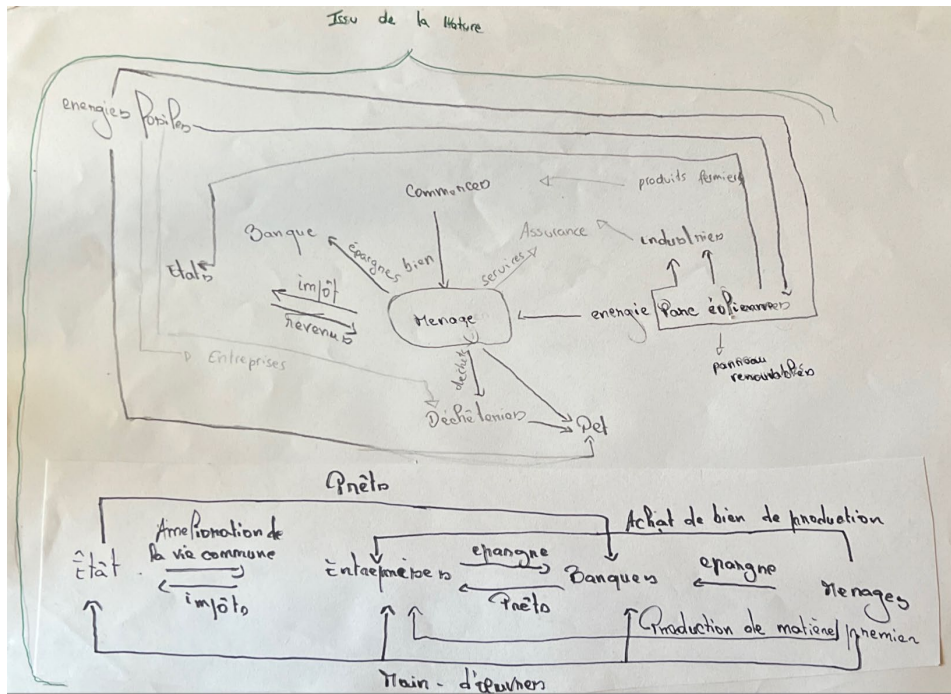 Issu de la Nature
energies fosiles
Commerces
produits fermiers
Banque
Assurance
industries
épargnes
bien
services
Etats
impôt
revenus
Menage
energie
Parc éoliennes
panneau
renouvelables
Entreprises
déchets
Déchèteries
Pet
Prêts
Amelioration de
la vie commune
Achat de bien de production
Êtât
impôts
Entreprises
epargne
Prêts
Banques
epargne
Menages
Production de matières premier
Main-d'œuvres